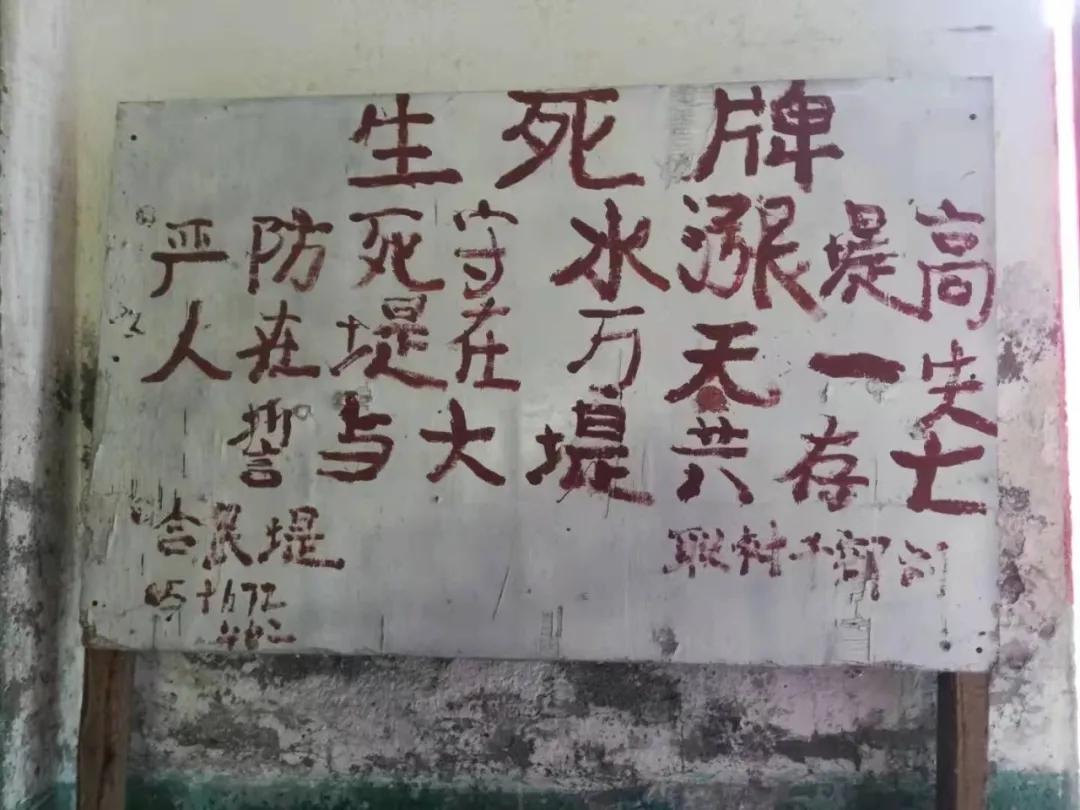 生死牌
严防死守 水涨堤高
人在堤在 万无一失
誓与大堤共存亡
合民堤 联村干部